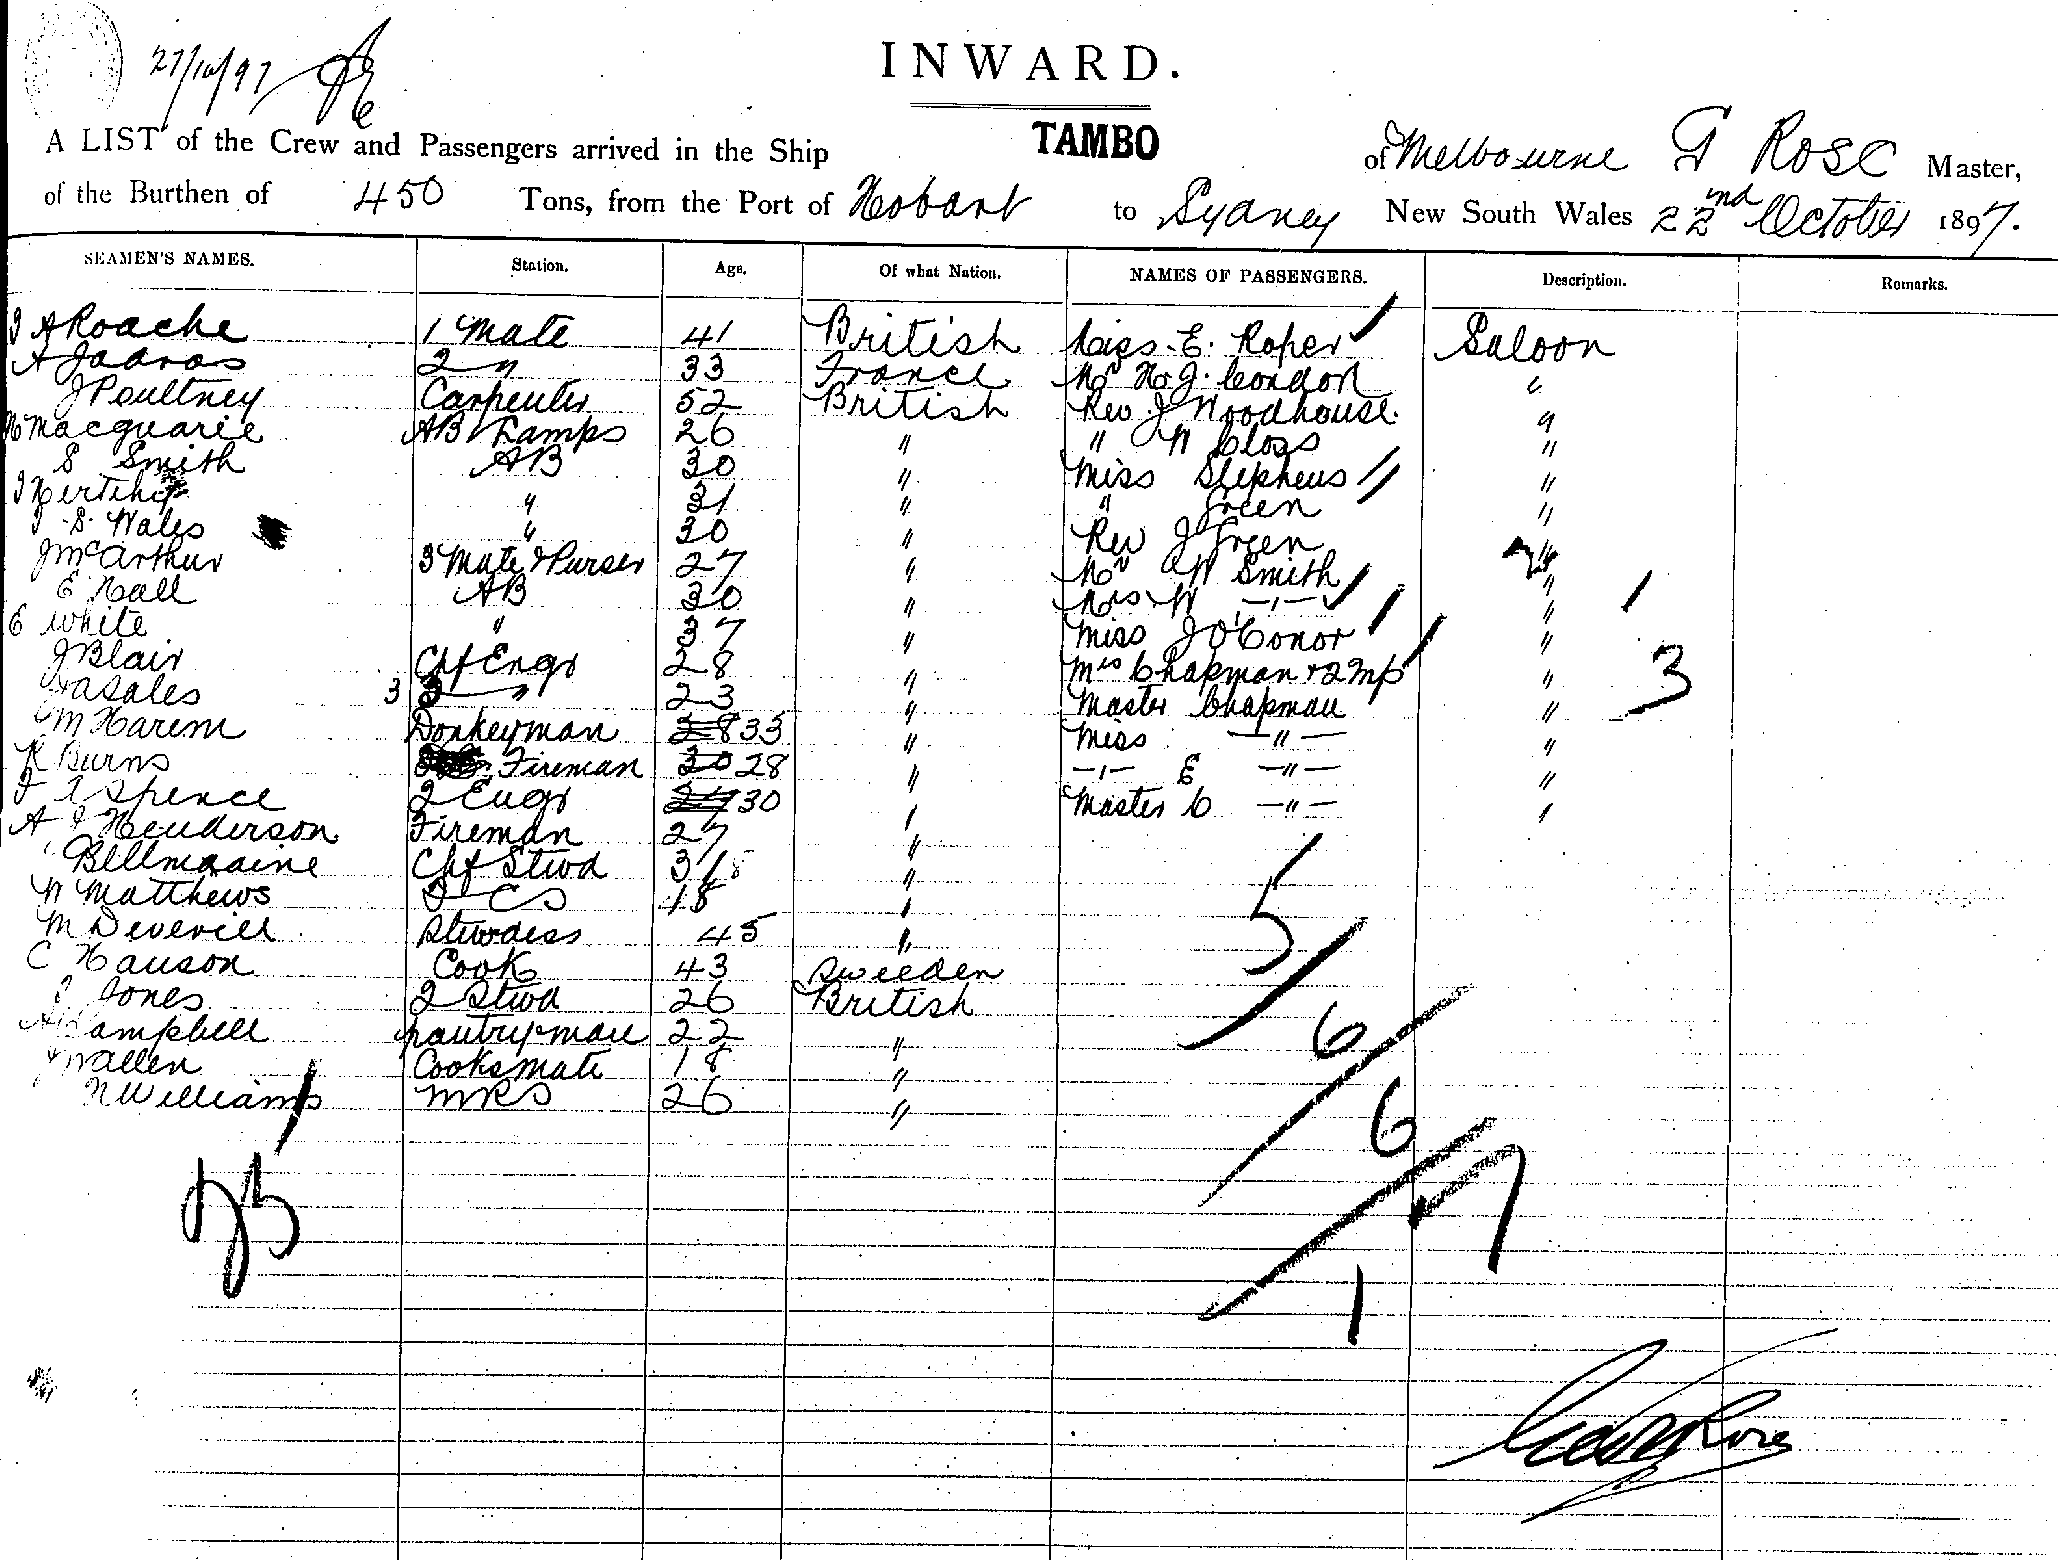 27/10/97
INWARD.
A LIST of the Crew and Passengers arrived in the Ship TAMBO of Melbourne G Rose Master,
of the Burthen of 450 Tons, from the Port of Hobart to Sydney New South Wales 22nd October 1897.
SEAMEN'S NAMES. Station. Age. Of what Nation. NAMES OF PASSENGERS. Description. Remarks.
J A Roache 1 Mate 41 British Miss E. Roper Saloon
A 2 " 33 France Mr H. J. Condon "
J Poultney Carpenter 52 British Rev J Woodhouse "
H Macquarie AB Lamps 26 " " W Closs "
S Smith AB 30 " Miss Stephens "
" 31 " " Green "
J. S. Wales " 30 " Rev J Green "
J McArthur 3 Mate & Purser 27 " Mr W Smith "
E Hall AB 30 " Mrs W —"— " 1
E White " 37 " Miss J O'Conor "
J Blair Chf Engr 28 " Mrs Chapman + 2 Inf " 3
Sales 3 3 " 23 " Master Chapman "
M Harem Donkeyman 38 33 " Miss —"— "
R Burns Fireman 30 28 " —"— E —"— "
Spence 2 Engr 30 " Master C —"— "
A J Henderson Fireman 27 "
Bellmaine Chf Stwd 31 "
W Matthews 2 CS 18 "
M Deverill Stwdess 45 "
C Hanson Cook 43 Sweeden
J Jones 2 Stwd 26 British
A Campbell pantryman 22 "
J Wallen Cooks mate 18 "
N Williams MRS 26 "
5
6
6
1
Geo Rose